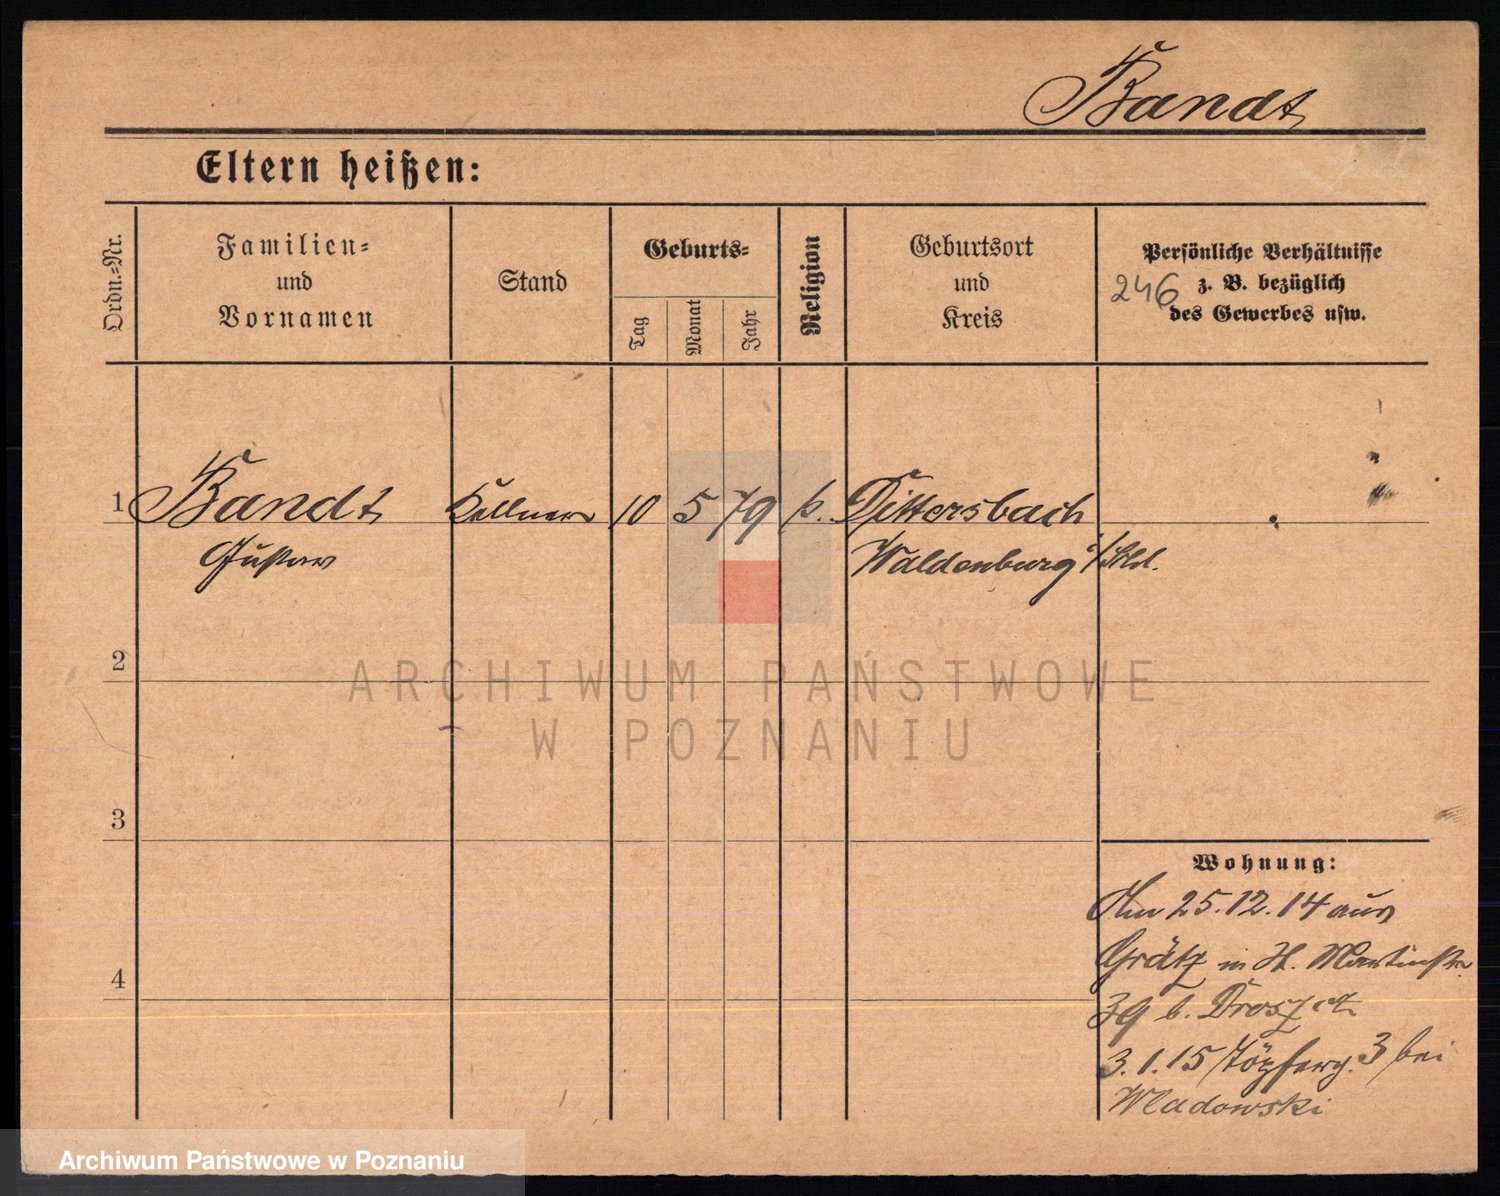 Bandt
Eltern heißen:
Ordn.-Nr.
Familien-
und
Vornamen
Stand
Geburts-
Tag
Monat
Jahr
Religion
Geburtsort
und
Kreis
Persönliche Verhältnisse
z. B. bezüglich
des Gewerbes usw.
246
1 Bandt Kellner 10 5 79 k. Dittersbach
Gustav Waldenburg i/Schl.
2
ARCHIWUM PAŃSTWOWE
W POZNANIU
3
Wohnung:
Am 25.12.14 aus
Grätz in St. Martinstr.
39 b.
4
3.1.15 Töpferg. 3 bei
Wladowski
Archiwum Państwowe w Poznaniu